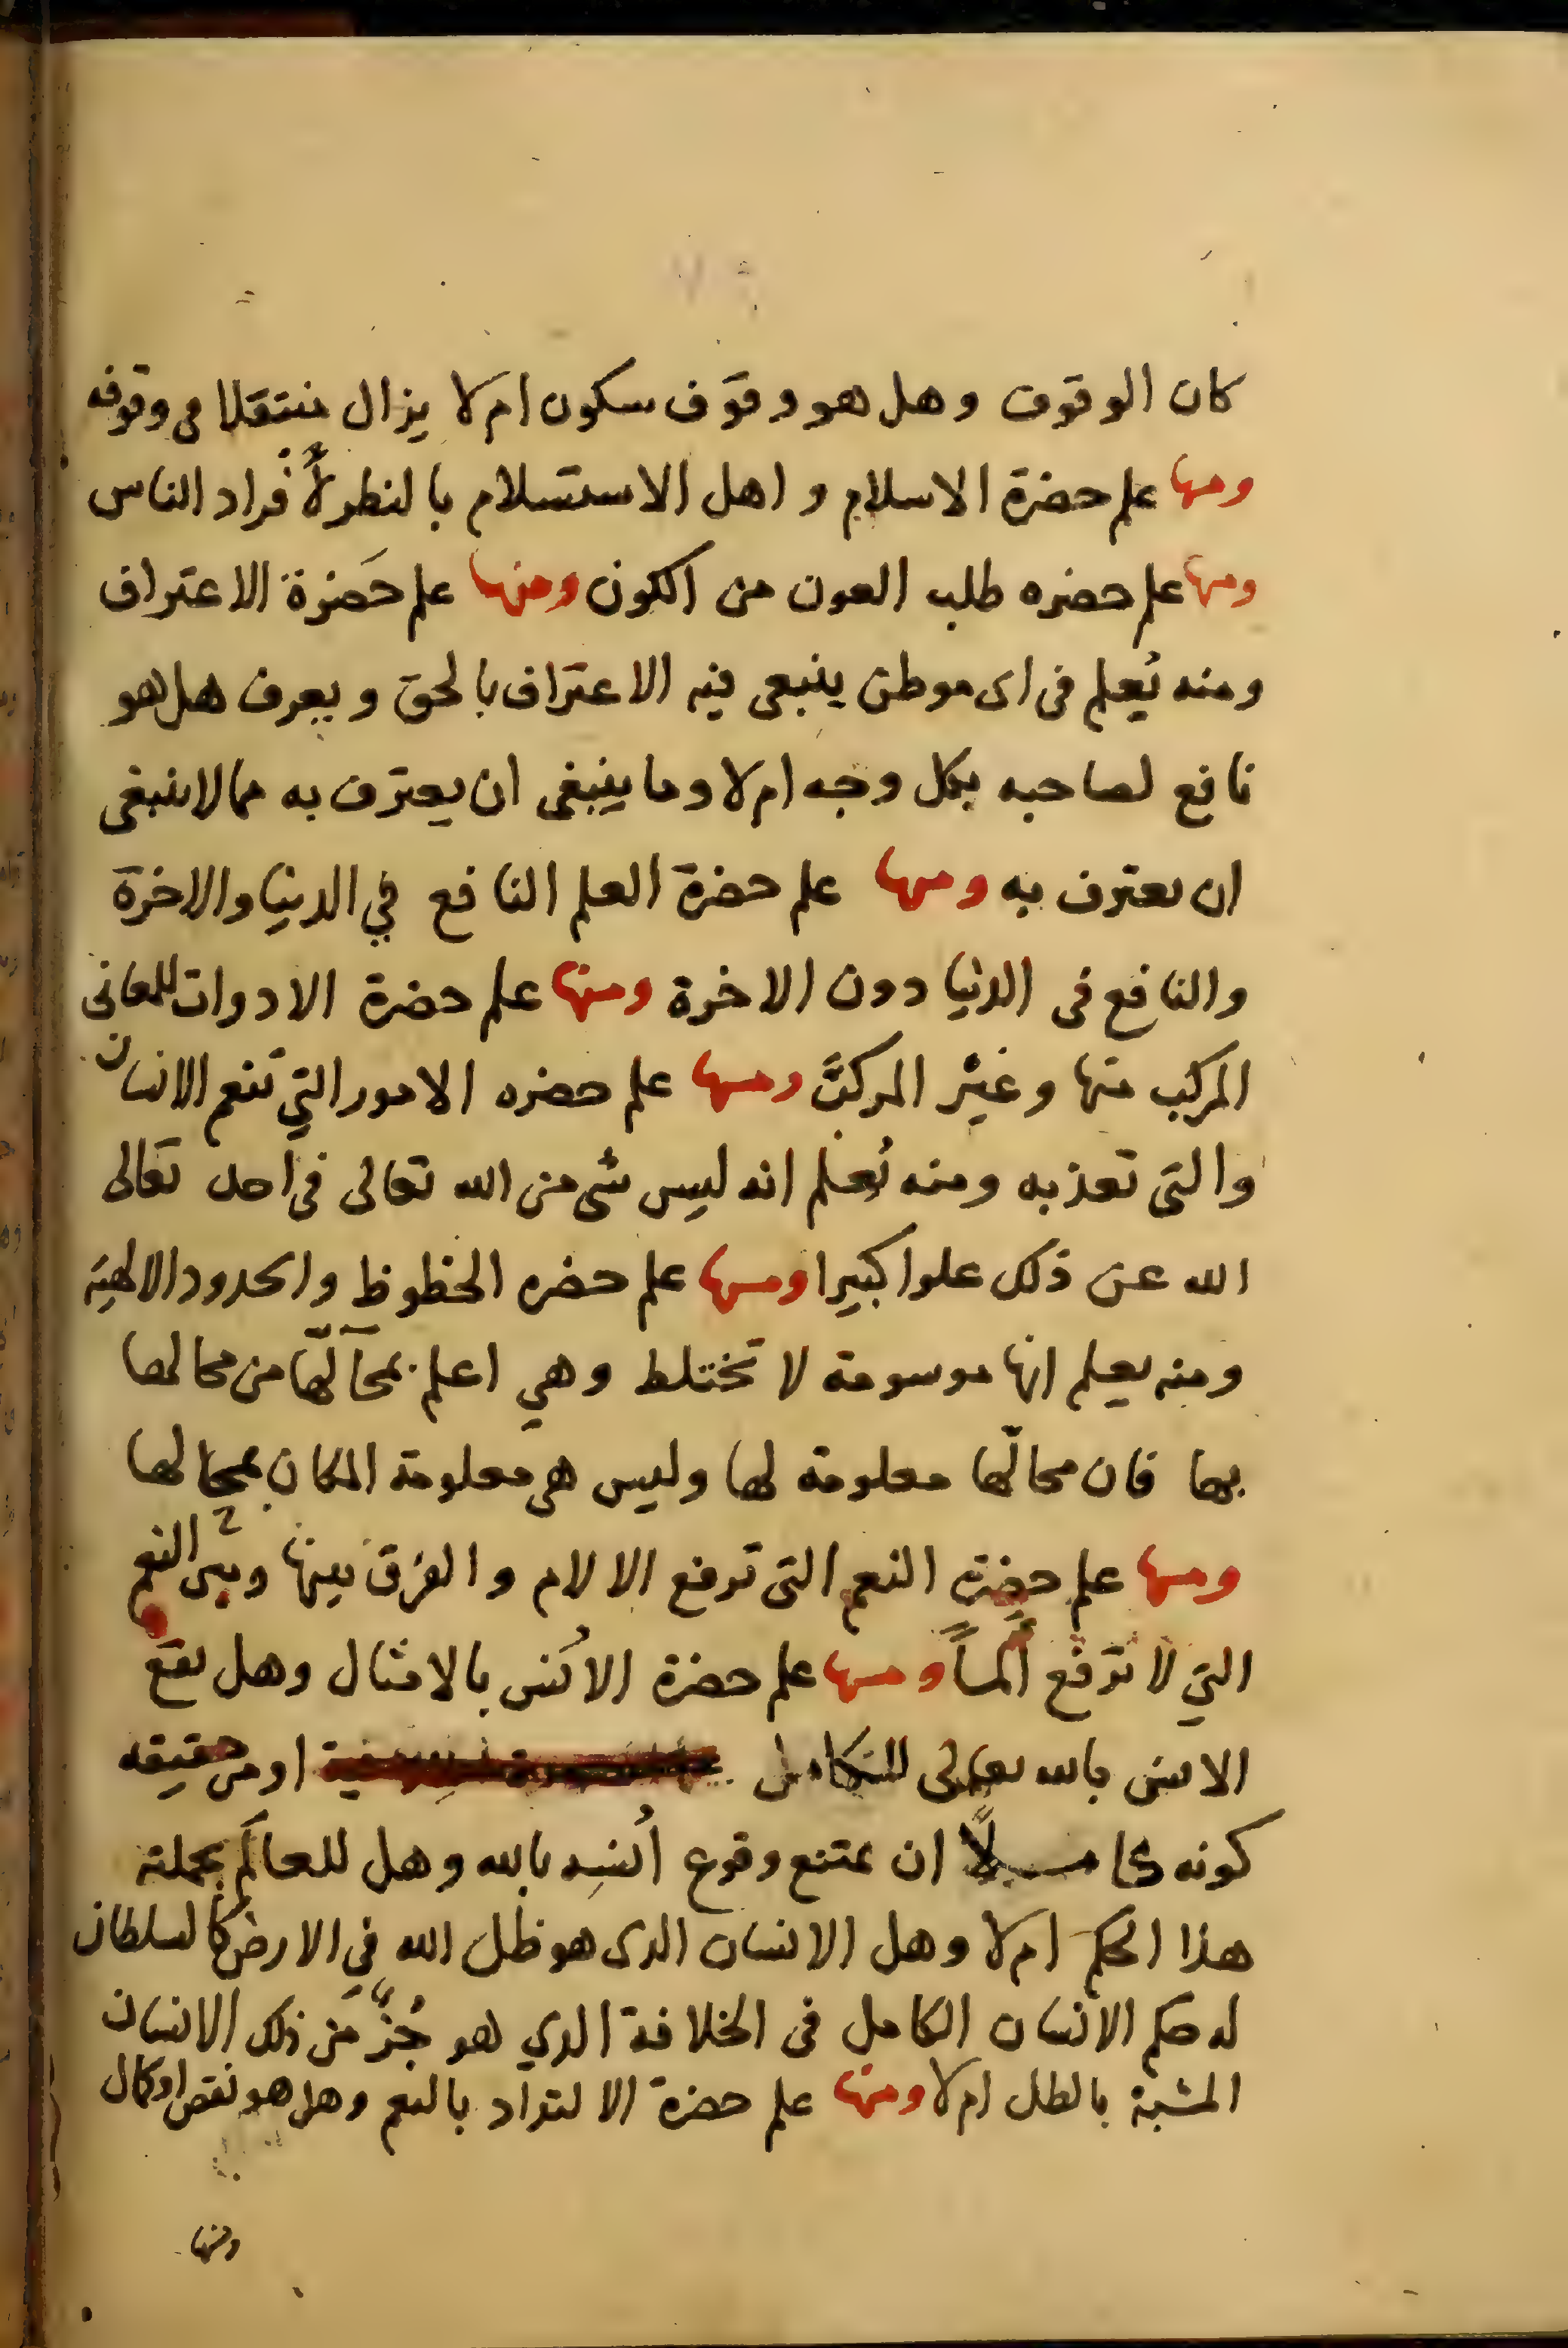 كان الوقوف وهل هو وقوف سكون ام لا يزال منتقلا في وقوفه
ومنها علم حضرة الاسلام واهل الاستسلام بالنظر لأفراد الناس
ومنها علم حضره طلب العون من الكون ومنها علم حَضرة الاعتراف
ومنه يُعلم فى اى موطن ينبغى فيه الاعتراف بالحق ويعرف هل هو
نافع لصاحبه بكل وجه ام لا وما ينبغى ان يعترف به مما لا ينبغى
ان يعترف به ومنها علم حضرة العلم النافع في الدنيا والاخرة
والنافع فى الدنيا دون الاخرة ومنها علم حضرة الادوات للمعانى
المركب منها وغير المركب ومنها علم حضره الامور التي تنعم الانسان
والتى تعذبه ومنه نُعلم انه ليس شى من الله تعالى فى احد تعالى
الله عن ذلك علوا كبيرا ومنها علم حضره الحظوظ والحدود الالهية
ومنه يعلم انها موسومة لا تختلط وهي اعلم بمحآلّها من محالها
بها فان محالّها معلومة لها وليس هى معلومة المكان بمحالها
ومنها علم حضرة النعم التى ترفع الالام والفرق بينها وبين النعم
التي لا ترفع ألماً ومنها علم حضرة الانس بالامثال وهل يقع
الانس بالله تعالى للكامل او من حقيقه
كونه كاملًا ان يمتنع وقوع أنسه بالله وهل للعالَم بجملته
هذا الحكم ام لا وهل الانسان الذى هو ظل الله في الارض كالسلطان
له حكم الانسان الكامل فى الخلافة الذي هو جُزء من ذلك الانسان
المشبة بالظل ام لا ومنها علم حضرة الالتذاد بالنعم وهل هو نقص او كمال
ومنها